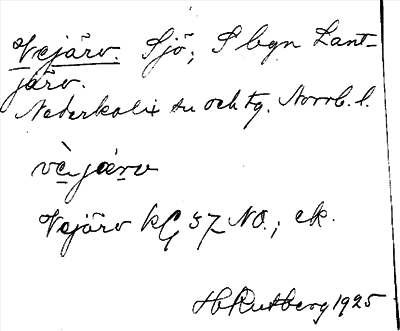 Vejärv. Sjö; S bgn Lant-
järv.
Nederkalix sn och tg. Norrb. l.
vèjærv
Vejärv kG 57 NO.; ek.
HRutberg 1925